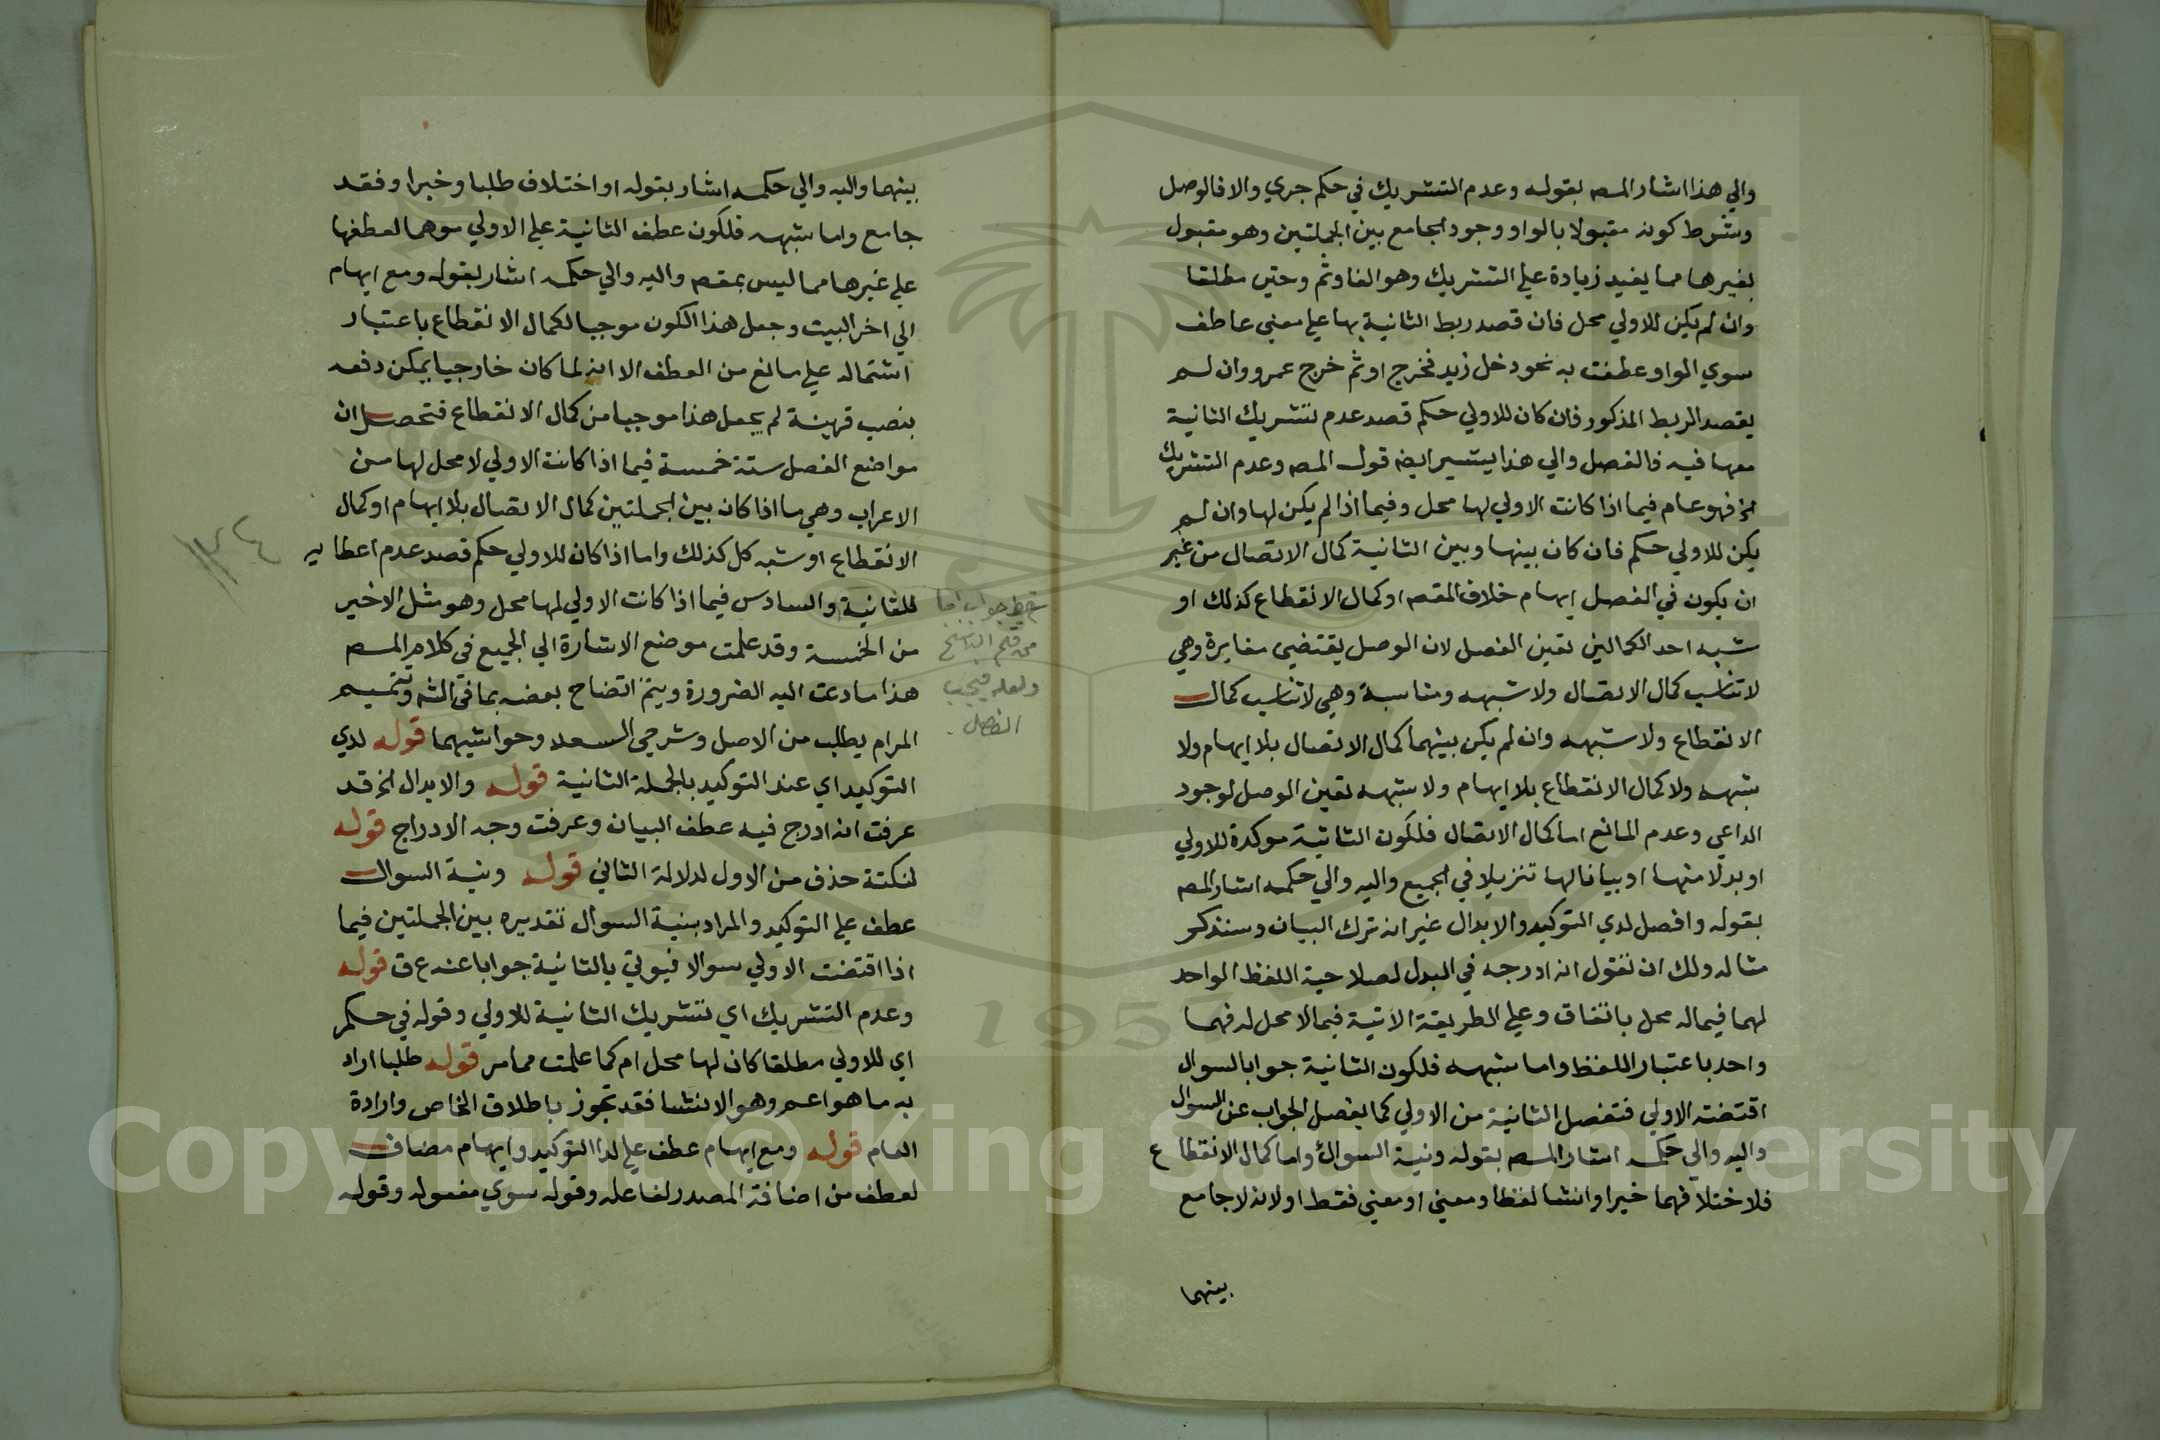 والي هذا اشار المصه بقوله وعدم التشريك في حكم جري والا فالوصل
وشرط كونه مقبولا بالواو وجود الجامع بين الجملتين وهو مقبول
بغيرها مما يفيد زيادة علي التشريك وهو الفا وثم وحتي مطلقا
وان لم يكن للاولي محل فان قصد ربط الثانية بها علي معني عاطف
سوي الواو عطفت به نحو دخل زيد فخرج او ثم خرج عمرو وان لم
يقصد الربط المذكور فان كان للاولي حكم قصد عدم تشريك الثانية
معها فيه فالفصل والي هذا يشير ايضه قول المصه وعدم التشريك
الخ فهو عام فيما اذا كانت الاولي لها محل وفيما اذا لم يكن لها وان لم
يكن للاولي حكم فان كان بينها وبين الثانية كمال الاتصال من غير
ان يكون في الفصل ايهام خلاف المقصه او كمال الانقطاع كذلك او
شبه احد الكمالين تعين الفصل لان الوصل يقتضي مغايرة وهي
لا تناسب كمال الاتصال ولا شبهه ومناسبة وهي لا تناسب كمال
الانقطاع ولا شبهه وان لم يكن بينهما كمال الاتصال بلا ايهام ولا
شبهه ولا كمال الانقطاع بلا ايهام ولا شبهه تعين الوصل لوجود
الداعي وعدم المانع اما كمال الاتصال فلكون الثانية موكدة للاولي
او بدلا منها او بيانا لها تنزيلا في الجميع واليه والي حكمه اشار المصه
بقوله وافصل لدي التوكيد والابدال غير انه ترك البيان وسنذكر
مثاله ولك ان تقول انه ادرجه في البدل لصلاحية اللفظ الواحد
لهما فيما له محل باتفاق وعلي الطريقة الاتية فيما لا محل له فهما
واحد باعتبار اللفظ واما شبهه فلكون الثانية جوابا لسوال
اقتضته الاولي فتفصل الثانية من الاولي كما يفصل الجواب عن السوال
واليه والي حكمه اشار المصه بقوله ونية السوال واما كمال الانقطاع
فلاختلا فهما خبرا وانشا لفظا ومعني او معني فقط او لانه لا جامع
بينهما
بينهما واليه والي حكمه اشار بقوله او اختلاف طلبا وخبرا وفقد
جامع واما شبهه فلكون عطف الثانية علي الاولي موهما لعطفها
علي غيرها مما ليس بمقصه واليه والي حكمه اشار بقوله ومع ايهام
الي اخر البيت وجعل هذا الكون موجبا لكمال الانقطاع باعتبار
اشتماله علي مانع من العطف الا انه لما كان خارجيا يمكن دفعه
بنصب قرينة لم يجعل هذا موجبا من كمال الانقطاع فتحصل ان
مواضع الفصل ستة خمسة فيما اذا كانت الاولي لا محل لها من
الاعراب وهي ما اذا كان بين الجملتين كمال الاتصال بلا ايهام او كمال
الانقطاع او شبه كل كذلك واما اذا كان للاولي حكم قصد عدم اعطايه
للثانية والسادس فيما اذا كانت الاولي لها محل وهو مثل الاخير
من الخمسة وقد علمت موضع الاشارة الي الجميع في كلام المصه
هذا ما دعت اليه الضرورة ويتم اتضاح بعضه بما في الشه وتتميم
المرام يطلب من الاصل وشرحي السعد وحواشيهما قوله لدي
التوكيد اي عند التوكيد بالجملة الثانية قوله والابدال الخ قد
عرفت انه ادرج فيه عطف البيان وعرفت وجه الادراج قوله
لنكتة حذف من الاول لدلالة الثاني قوله ونية السوال
عطف علي التوكيد والمراد بنية السوال تقديره بين الجملتين فيما
اذا اقتضت الاولي سوالا فيوتي بالثانية جوابا عنه ع ق قوله
وعدم التشريك اي تشريك الثانية للاولي وقوله في حكم
اي للاولي مطلقا كان لها محل ام كما علمت مما مر قوله طلبا اراد
به ما هو اعم وهو الانشا فقد تجوز باطلاق الخاص وارادة
العام قوله ومع ايهام عطف علي لدا التوكيد وايهام مضاف
لعطف من اضافة المصدر لفاعله وقوله سوي مفعوله وقوله
جواب اما
من قلم الناسخ
ولعله فيجب
الفصل
١٢٤
Copyright © King Saud University
195